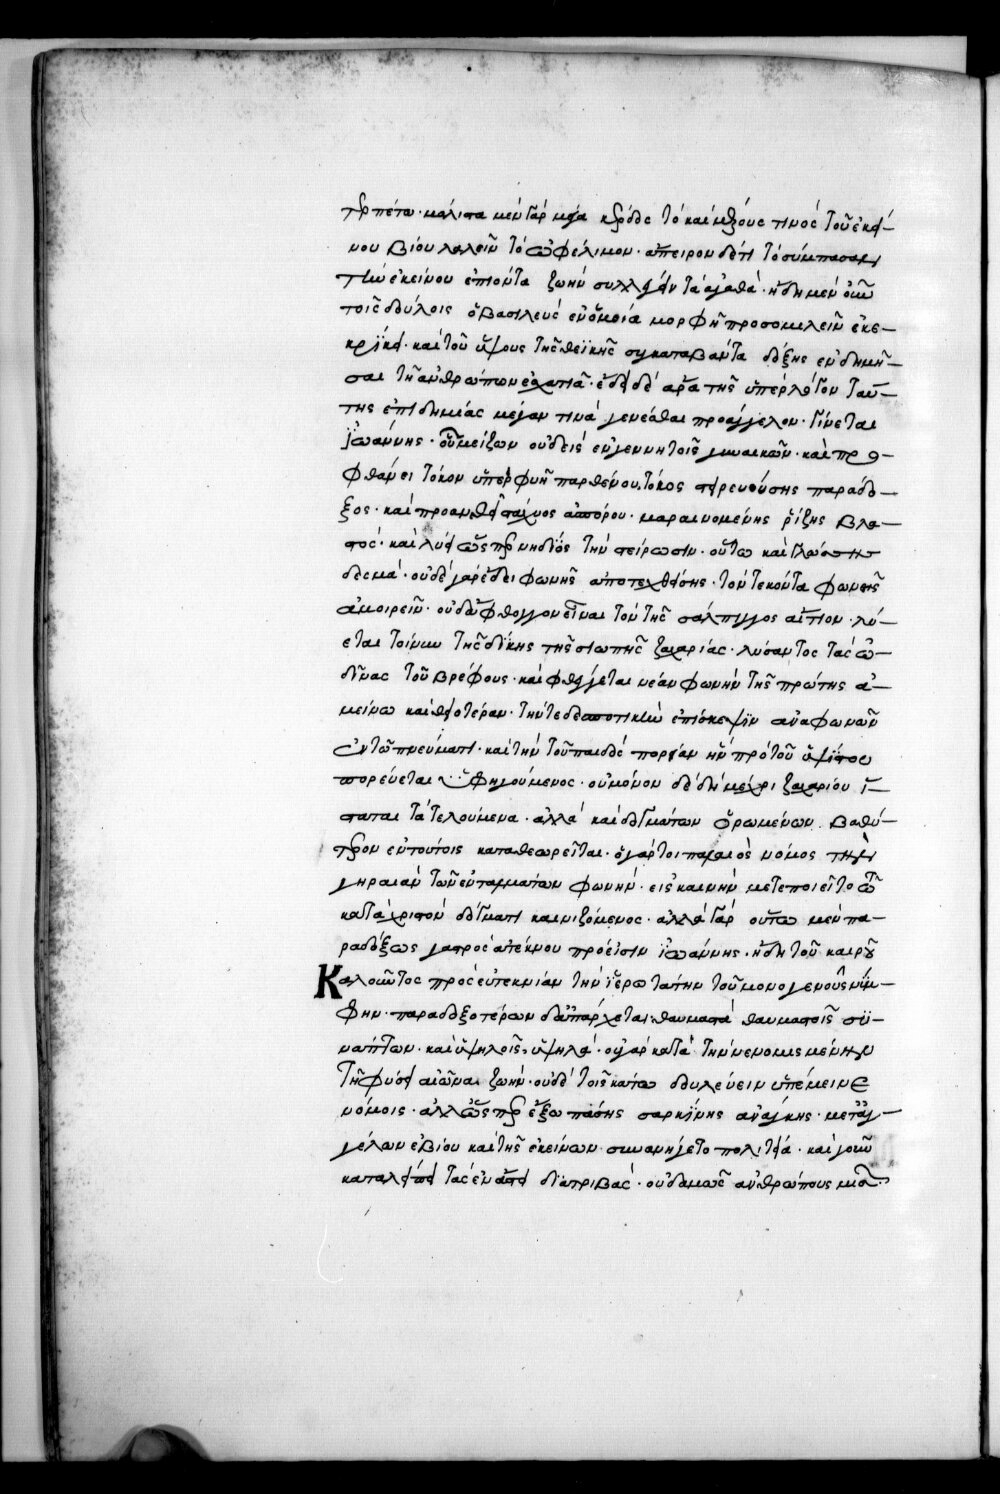 τρπέτω· μάλιστα μὲν γὰρ μέγα κέρδος τὸ καὶ μέρους τινὸς τοῦ ἐκεί-
νου βίου λαλεῖν τὸ ὠφέλιμον· ἄπειρον δέ τι τὸ σύμπασαν
τὴν ἐκείνου ἐπιόντα ζωὴν συλλέγειν τὰ ἀγαθά· ἤδη μὲν οὖν
τοῖς δούλοις ὁ βασιλεὺς ἐν ὁμοία μορφῆ προσομιλεῖν ἐκε-
κρίκει· καὶ τοῦ ὕψους τῆς θεϊκῆς συγκαταβάντα δόξης ἐνδημῆ-
σαι τῆ ἀνθρώπων ἐσχατιᾶ· ἔδει δὲ ἄρα τῆς ὑπὲρ λόγον ταύ-
της ἐπιδημίας μέγαν τινὰ γενέσθαι προάγγελον· γίνεται
ἰωάννης· οὗ μείζων οὐδεὶς ἐν γεννητοῖς γυναικῶν· καὶ προ-
φθάνει τόκον ὑπερφυῆ παρθένου, τόκος στειρευούσης παράδο-
ξος· καὶ προανθεῖ στάχυος ἀσπόρου· μαραινομένης ῥίζης βλα-
στός· καὶ λύει ὥσπερ νηδύος τὴν στείρωσιν· οὕτω καὶ γλώσσης
δεσμά· οὐδὲ γὰρ ἔδει φωνῆς ἀποτεχθείσης· τὸν τεκόντα φωνῆς
ἀμοιρεῖν· οὐδ' ἄφθογγον εἶναι τὸν τῆς σάλπιγγος αἴτιον· λύ-
εται τοίνυν τῆς δίκης τῆς σιωπῆς ζαχαρίας· λύσαντος τὰς ὠ-
δῖνας τοῦ βρέφους· καὶ φθέγγεται νέαν φωνὴν τῆς πρώτης ἀ-
μείνω καὶ θειοτέραν· τήν τε δεσποτικὴν ἐπίσκεψιν ἀναφωνῶν
ἐν τῶ πνεύματι· καὶ τὴν τοῦ παιδὸς πορείαν ἣν πρὸ τοῦ ὑψίστου
πορεύεται ὑφηγούμενος· οὐ μόνον δὲ δὴ μέχρι ζαχαρίου ἵ-
σταται τὰ τελούμενα· ἀλλὰ καὶ δογμάτων ὁρωμένων βαθύ-
τερον ἐν τούτοις καταθεωρεῖται· ὁ γάρ τοι παλαιὸς νόμος τὴν
γηραιὰν τῶν ἐνταλμάτων φωνήν· εἰς καινὴν μετεποιεῖτο τῶ
κατὰ χριστὸν δόγματι καινιζόμενος· ἀλλὰ γὰρ οὕτω μὲν πα-
ραδόξως γαστρὸς ἀτέκνου πρόεισιν ἰωάννης· ἤδη τοῦ καιροῦ
Καλοῦντος πρὸς εὐτεκνίαν τὴν ἱερωτάτην τοῦ μονογενοῦς νύμ-
φην· παραδοξοτέρων δ' ἀπάρχεται· θαυμαστὰ θαυμαστοῖς συ-
νάπτων· καὶ ὑψηλοῖς, ὑψηλά· οὐ γὰρ κατὰ τὴν νενομισμένην
τῆ φύσει αἰῶνα ζωήν· οὐδὲ τοῖς κάτω δουλεύειν ὑπέμεινε
νόμοις· ἀλλ' ὥσπερ ἔξω πάσης σαρκίνης ἀνάγκης· μετ' ἀγ-
γέλων ἐβίου καὶ τῆς ἐκείνων συνανήγετο πολιτεία· καὶ γοῦν
καταλείπει τὰς ἐν ἄστει διατριβάς· οὐδαμῶς ἀνθρώπους